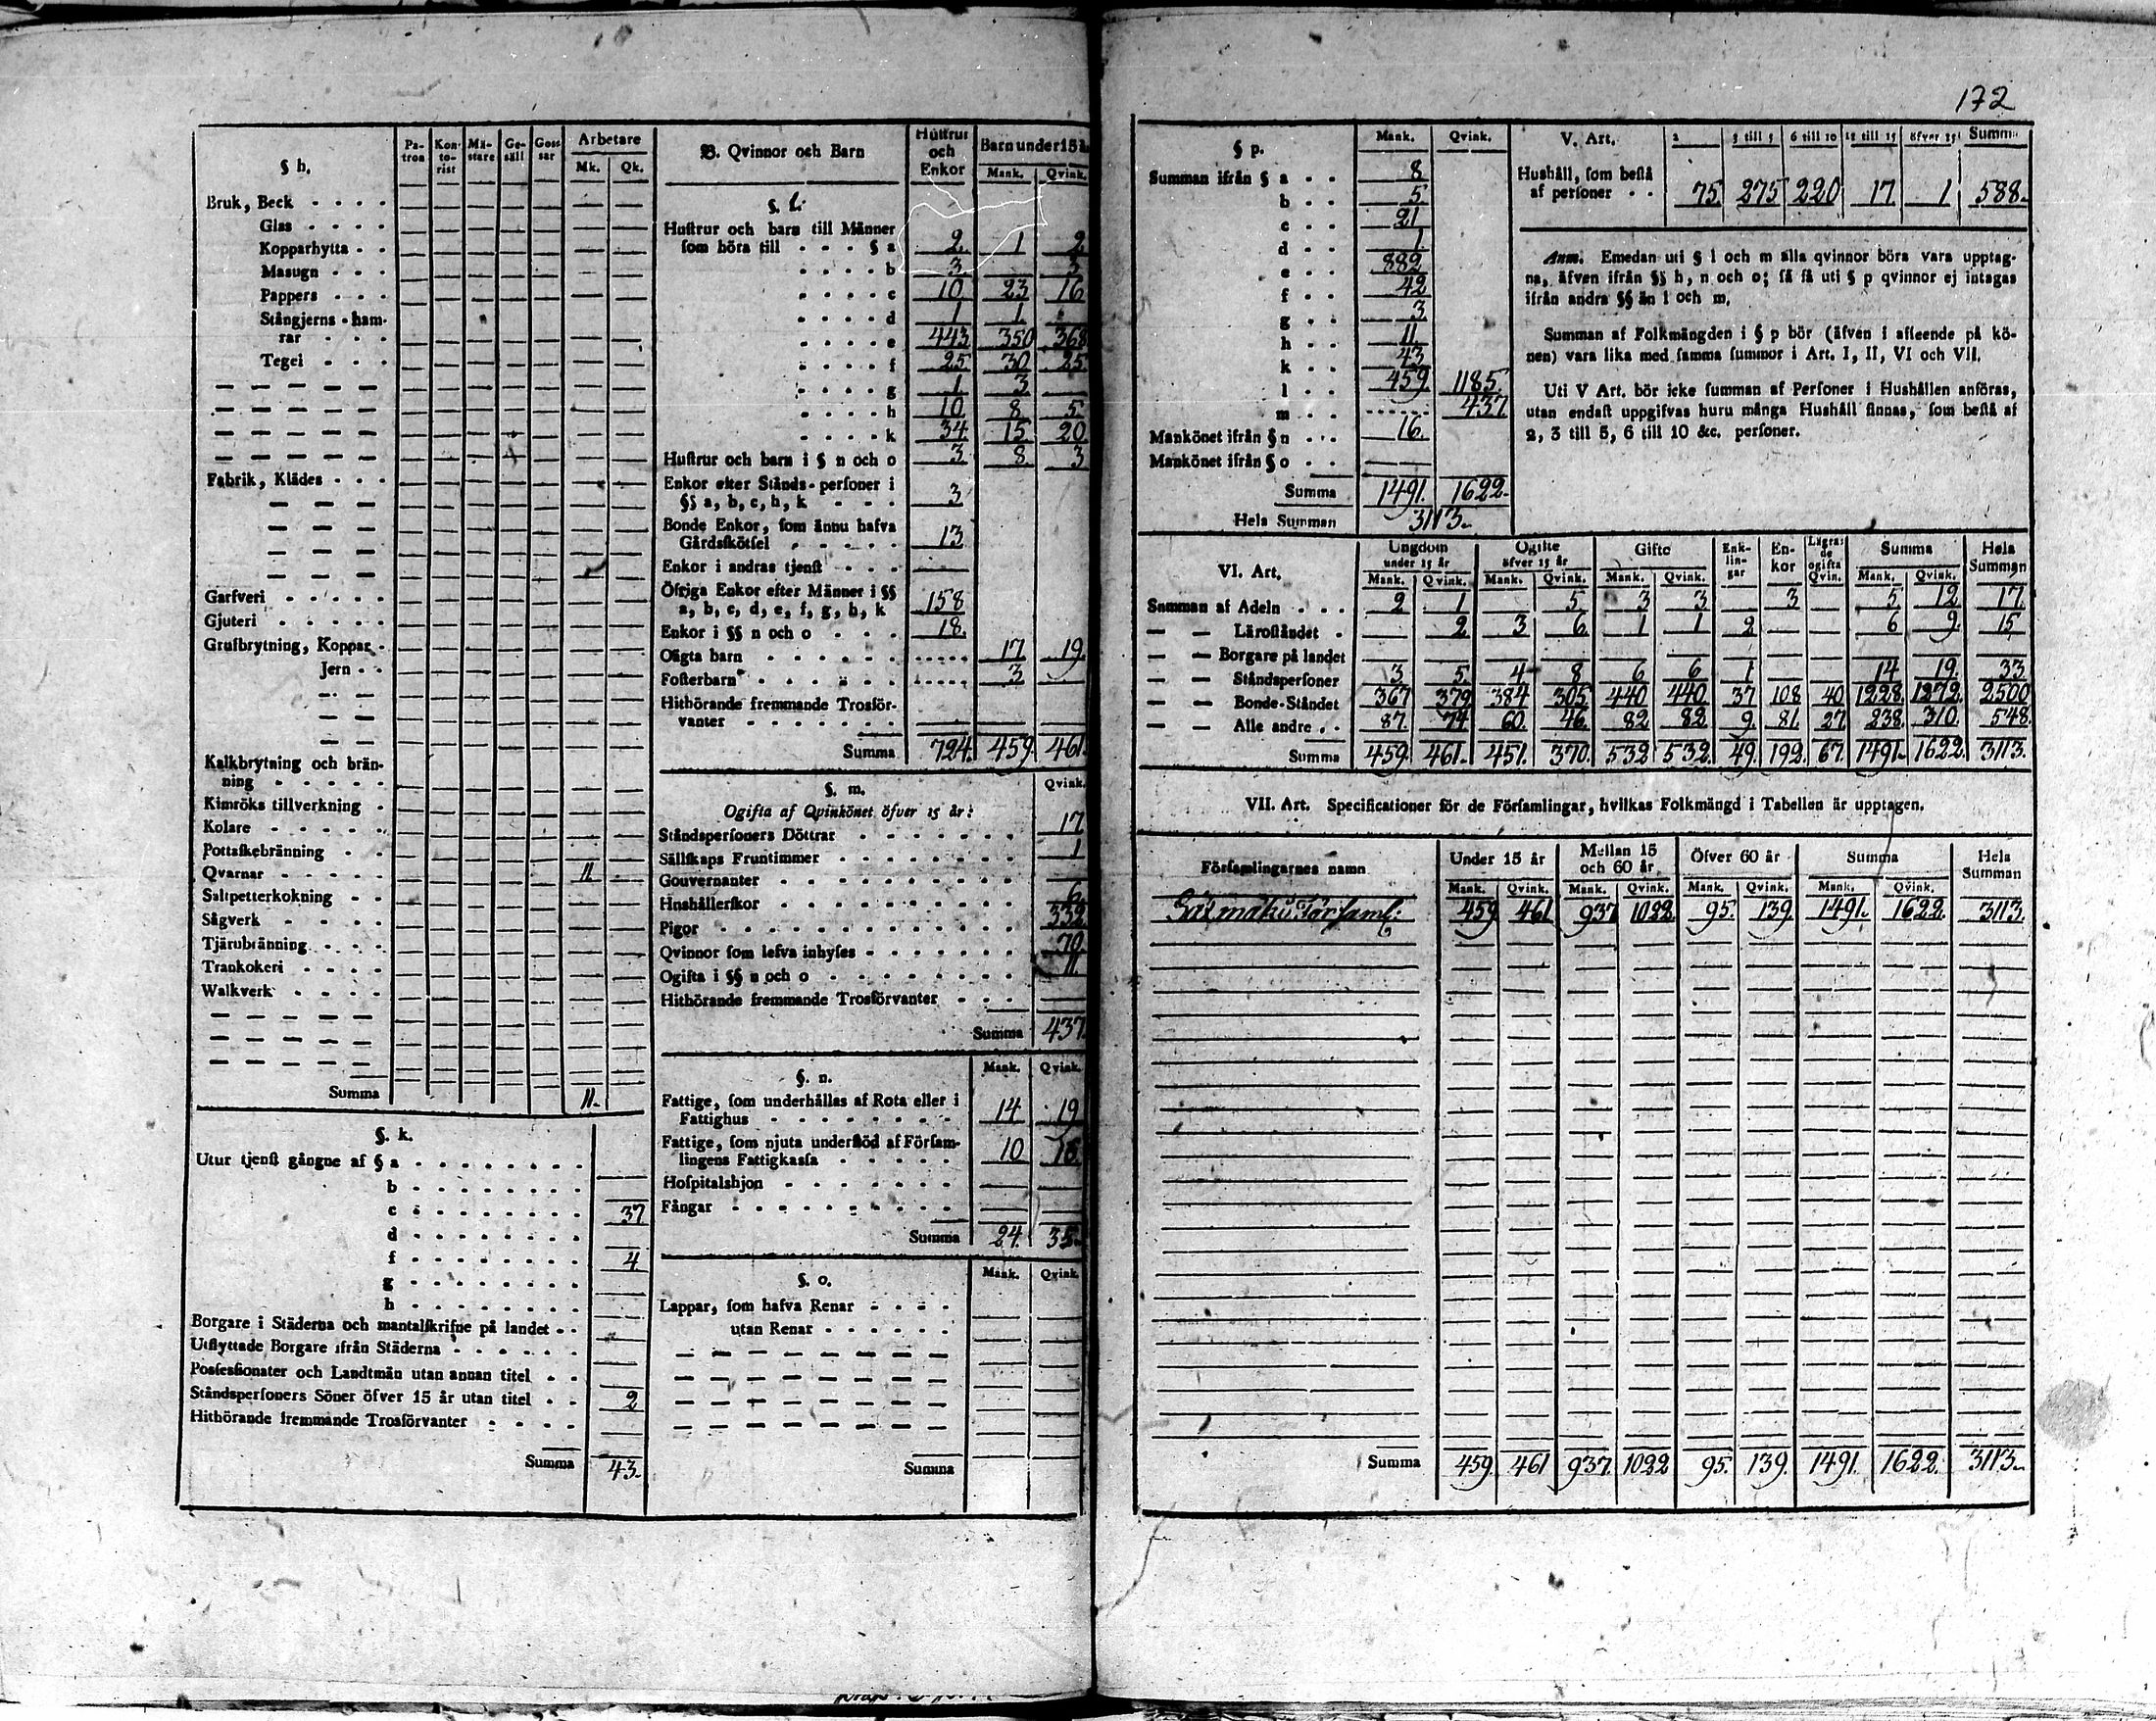 172
§ h.
Pa-tron Kon-to-rist Mä-stare Ge-säll Gos-sar Arbetare
Mk. Qk.
Bruk, Beck
Glas
Kopparhytta
Masugn
Pappers
Stångjerns-ham-
rar
Tegel
Fabrik, Klädes
Garfveri
Gjuteri
Grufbrytning, Koppar
Jern
Kalkbrytning och brän-
ning
Kimröks tillverkning
Kolare
Pottaskebränning
Qvarnar 11.
Saltpetterkokning
Sågverk
Tjärubränning
Trankokeri
Walkverk
Summa 11.
§. k.
Utur tjenst gångne af § a
b
c 37
d
f 4
g
h
Borgare i Städerna och mantalskrifne på landet
Utflyttade Borgare ifrån Städerna
Possessionater och Landtmän utan annan titel
Ståndspersoners Söner öfver 15 år utan titel 2
Hithörande fremmande Trosförvanter
Summa 43.
B. Qvinnor och Barn
Hustrur och Enkor Barn under 15 år
Mank. Qvink.
§. l.
Hustrur och barn till Männer
som höra till § a 2. 1 2
b 3 3
c 10 23 16
d 1 1
e 443 350 368
f 25 30 25
g 1 3
h 10 8 5
k 34 15 20
Hustrur och barn i § n och o 3 8 3
Enkor efter Stånds-personer i
§§ a, b, c, h, k 3
Bonde Enkor, som ännu hafva
Gårdsskötsel 13
Enkor i andras tjenst
Öfriga Enkor efter Männer i §§
a, b, c, d, e, f, g, h, k 158
Enkor i §§ n och o 18.
Oägta barn 17 19
Fosterbarn 3
Hithörande fremmande Trosför-
vanter
Summa 724. 459. 461
§. m. Qvink.
Ogifta af Qvinkönet öfver 15 år:
Ståndspersoners Döttrar 17
Sällskaps Fruntimmer 1
Gouvernanter
Hushållerskor 6
Pigor 332
Qvinnor som lefva inhyses 70
Ogifta i §§ n och o 11.
Hithörande fremmande Trosförvanter
Summa 437
§. n. Mank. Qvink.
Fattige, som underhållas af Rota eller i
Fattighus 14 19
Fattige, som njuta understöd af Försam-
lingens Fattigkassa 10 16
Hospitalshjon
Fångar
Summa 24. 35
§. o. Mank. Qvink.
Lappar, som hafva Renar
utan Renar
Summa
§ p. Mank. Qvink.
Summan ifrån § a 8
b 5
c 21
d 1
e 882
f 42
g 3
h 11
k 43
l 459. 1185.
m 437
Mankönet ifrån § n 16.
Mankönet ifrån § o
Summa 1491. 1622.
Hela Summan 3113.
V. Art. 2 3 till 5 6 till 10 11 till 15 öfver 15 Summa
Hushåll, som bestå
af personer 75 275 220 17 1 588.
Anm. Emedan uti § l och m alla qvinnor böra vara upptag-
na, äfven ifrån §§ h, n och o; så få uti § p qvinnor ej intagas
ifrån andra §§ än l och m.
Summan af Folkmängden i § p bör (äfven i afseende på kö-
nen) vara lika med samma summor i Art. I, II, VI och VII.
Uti V Art. bör icke summan af Personer i Hushållen anföras,
utan endast uppgifvas huru många Hushåll finnas, som bestå af
2, 3 till 5, 6 till 10 &c. personer.
VI. Art. Ungdom under 15 år Ogifte öfver 15 år Gifte Enk-lin-gar En-kor Lägra-de ogifta Qvin. Summa Hela Summan
Mank. Qvink. Mank. Qvink. Mank. Qvink. Mank. Qvink.
Summan af Adeln 2 1 5 3 3 3 5 12 17.
— — Läroståndet 2 3 6 1 1 2 6 9. 15
— — Borgare på landet
— — Ståndspersoner 3 5 4 8 6 6 1 14 19. 33
— — Bonde-Ståndet 367 379 384 305 440 440 37 108 40 1228 1272. 2500
— — Alle andre 87. 74 60. 46. 82 82 9 81. 27 238. 310. 548.
Summa 459. 461. 451. 370. 532 532. 49. 192. 67. 1491. 1622. 3113.
VII. Art. Specificationer för de Församlingar, hvilkas Folkmängd i Tabellen är upptagen.
Församlingarnes namn Under 15 år Mellan 15 och 60 år Öfver 60 år Summa Hela Summan
Mank. Qvink. Mank. Qvink. Mank. Qvink. Mank. Qvink.
Församl: 459 461 937 1022 95. 139 1491. 1622 3113.
Summa 459. 461 937. 1022 95. 139. 1491. 1622. 3113.